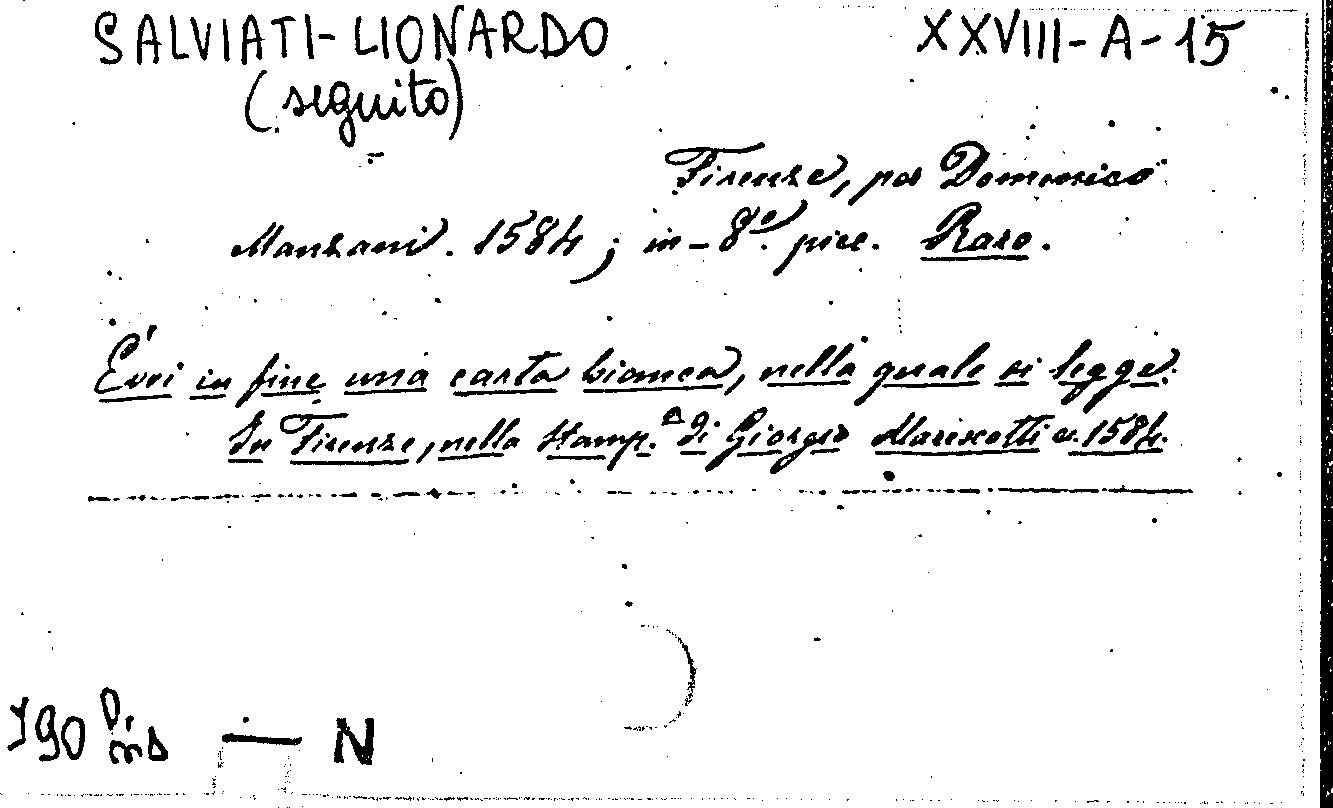 SALVIATI-LIONARDO XXVIII-A-15
(seguito)
Firenze, per Domenico
Manzani. 1584; in-8º. picc. Raro.
Evvi in fine una carta bianca, nella quale si legge:
In Firenze, nella Stamp.ª di Giorgio Marescotti 1584.
190 bis — N